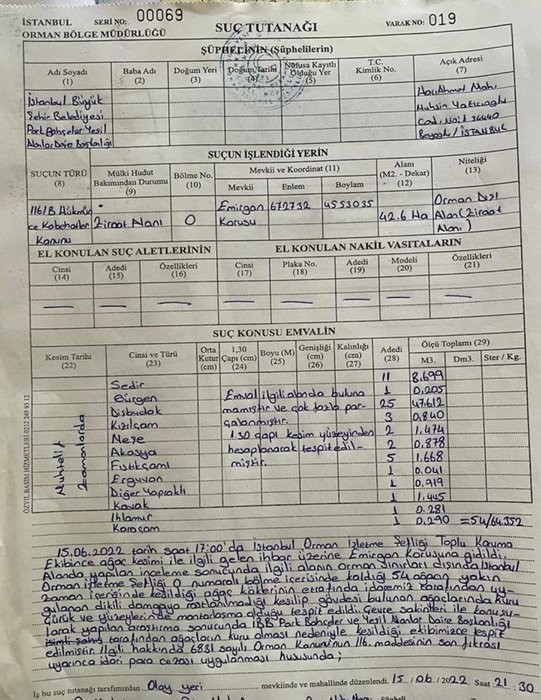 İSTANBUL SERİ NO: 00069
ORMAN BÖLGE MÜDÜRLÜĞÜ
SUÇ TUTANAĞI
VARAK NO: 019
ŞÜPHELİNİN (Şüphelilerin)
Adı Soyadı (1) Baba Adı (2) Doğum Yeri (3) Doğum Tarihi (4) Nüfusa Kayıtlı Olduğu Yer (5) T.C. Kimlik No. (6) Açık Adresi (7)
İstanbul Büyük
Şehir Belediyesi
Park Bahçeler Yeşil
Alanlar Daire Başkanlığı
Muhsin
Cad. No:1 34440
Beyoğlu/İSTANBUL
SUÇUN İŞLENDİĞİ YERİN
SUÇUN TÜRÜ (8) Mülki Hudut Bakımından Durumu (9) Bölme No. (10) Mevkii ve Koordinat (11) Mevkii Enlem Boylam Alanı (M2. - Dekar) (12) Niteliği (13)
116/B Hükmün
ce Kabahatler
Kanunu
Ziraat Alanı
0
Emirgan
Korusu
672732
4553035
42.6 Ha
Orman Dışı
Alan (Ziraat
Alanı)
EL KONULAN SUÇ ALETLERİNİN
EL KONULAN NAKİL VASITALARIN
Cinsi (14) Adedi (15) Özellikleri (16) Cinsi (17) Plaka No. (18) Adedi (19) Modeli (20) Özellikleri (21)
SUÇ KONUSU EMVALİN
Kesim Tarihi (22) Cinsi ve Türü (23) Orta Kutur (cm) 1,30 Çapı (cm) (24) Boyu (M) (25) Genişliği (cm) (26) Kalınlığı (cm) (27) Adedi (28) Ölçü Toplamı (29) M3. Dm3. Ster / Kg.
Muhtelif
zamanlarda
Sedir 11 8.699
Gürgen 1 0.205
Dişbudak 25 47.612
Kızılçam 3 0.840
Meşe 2 1.474
Akasya 2 0.878
Fıstıkçamı 5 1.668
Erguvan 1 0.041
Diğer Yapraklı 1 0.919
Kavak 1 1.445
Ihlamur 1 0.281
Karaçam 1 0.290 = 54/64.352
Emval ilgili alanda buluna
mamıştır ve çok fazla par
çalanmıştır.
1.30 çapı kesim yüzeyinden
hesaplanarak tespit edil
miştir.
ÖZYIL BASIM HİZMETLERİ 0212 249 95 12
15.06.2022 tarih saat 17:00'da İstanbul Orman İşletme Şefliği Toplu Koruma
Ekibince ağaç kesimi ile ilgili gelen ihbar üzerine Emirgan Korusuna gidildi.
Alanda yapılan inceleme sonucunda ilgili alanın orman sınırları dışında İstanbul
Orman İşletme Şefliği 0 numaralı bölme içerisinde kaldığı 54 ağacın yakın
zaman içeriğinde kesildiği ağaç köklerinin etrafında idaremiz tarafından uy-
gulanan dikili damgaya rastlanmadığı kesilip gövdesi bulunan ağaçlarda kuru
çürük ve yüzeylerinde mantarlaşma olduğu tespit edildi. Çevre sakinleri ile konuşu
larak yapılan araştırma sonucunda İBB Park Bahçeler ve Yeşil Alanlar Daire Başkanlığı
tarafından ağaçların kuru olması nedeniyle kesildiği ekibimizce tespit
edilmiştir. İlgili hakkında 6831 sayılı Orman Kanunu'nun 116. maddesinin son fıkrası
uyarınca idari para cezası uygulanması hususunda;
İş bu suç tutanağı tarafımızdan Olay yeri mevkiinde ve mahallinde düzenlendi. 15/06/2022 Saat 21.30